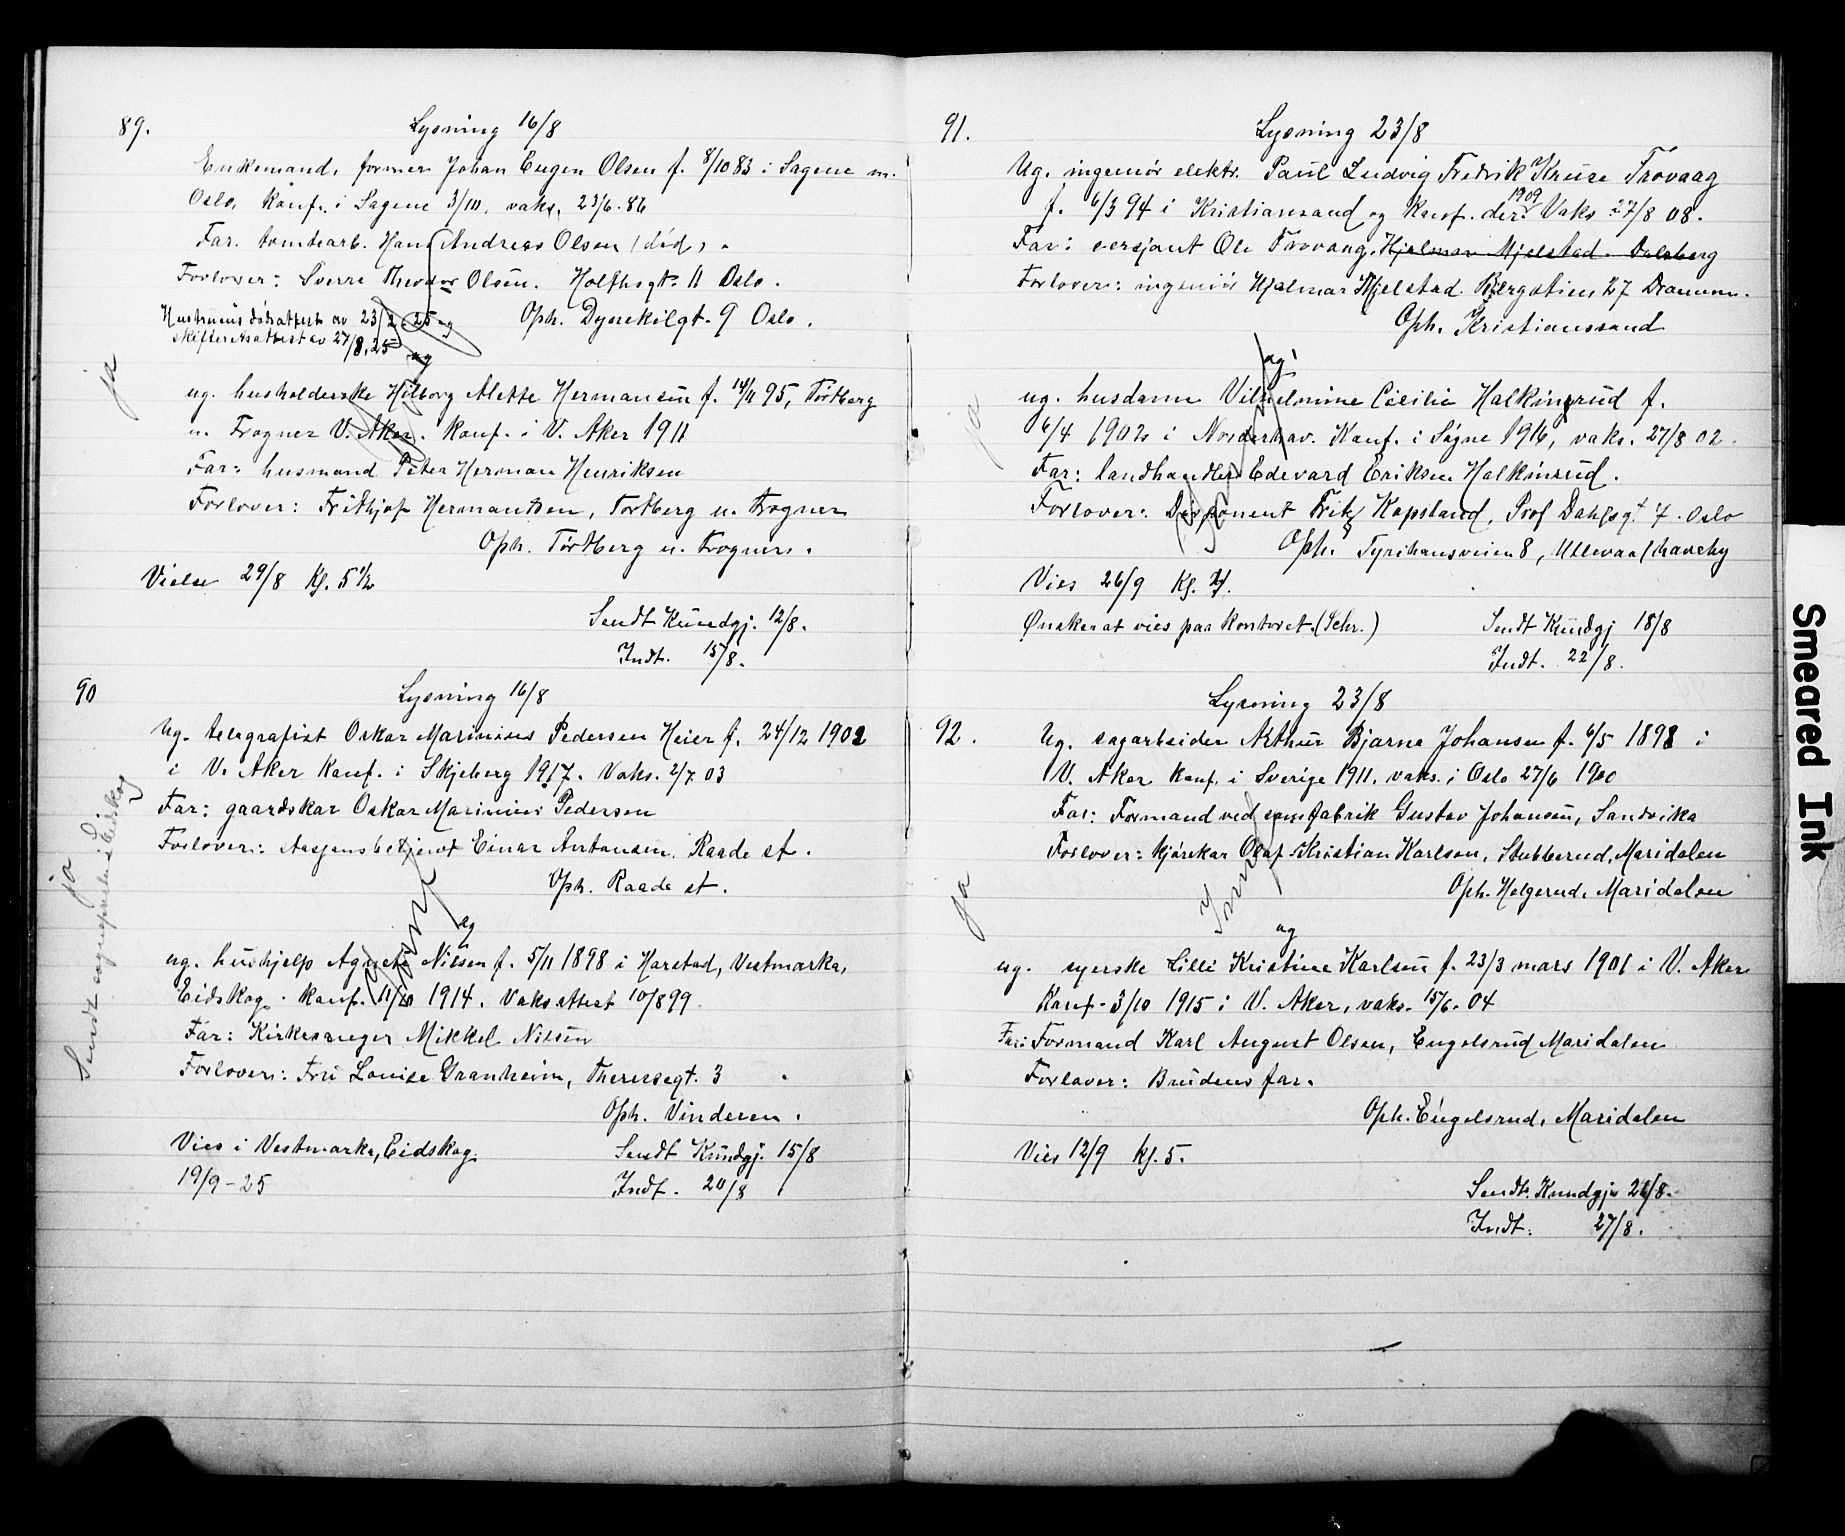 89.
Lysning 16/8
Enkemand, former Johan Eugen Olsen f. 8/10 83 i Sagene m.
Oslo, konf. i Sagene 3/10, vaks. 23/6. 86
Far. tomtearb. Hans Andreas Olsen (død).
Forlover: Sverre Theodor Olsen. Holthsgt. 11 Oslo.
Hustruens dødsattest av 23/2-25 og
Oph. Dynekilgt. 9 Oslo.
skifteretsattest av 27/8.25
og
ja
ug. husholderske Hilborg Alette Hermansen f. 14/11 95, Tørtberg
u. Frogner V. Aker. konf. i V. Aker 1911
Far: husmand Peter Herman Henriksen
Forlover: Frithjof Hermansen, Tørtberg u. Frogner
Oph. Tørtberg u. Frogner.
Vielse 29/8 Kl. 5 1/2
Sendt Kundgj. 12/8.
Indt. 15/8.
90
Lysning 16/8
Ug. telegrafist Oskar Marinius Pedersen Heier f. 24/12 1902
i V. Aker Konf. i Skjeberg 1917. Vaks. 2/7 03
Far: gaardskar Oskar Marinius Pedersen
Forlover: Stasjonsbetjent Einar Antonsen. Raade st.
Oph. Raade st.
og
ja
Sendt sogneprest i Eidskog
ug. hushjelp Agnete Nilsen f. 5/11 1898 i Harstad, Vestmarka,
Eidskog. konf. 11/10 1914. Vaksattest 10/8 99
Far: Kirkesanger Mikkel Nilsen
Forlover: Fru Louise Granheim, Theresegt. 3
Oph. Vinderen.
Vies i Vestmarka, Eidskog.
Sendt Kundgj. 15/8
19/9-25
Indt. 20/8
91.
Lysning 23/8
Ug. ingeniør elektr. Paul Ludvig Fredrik Kruse Trovaag
1909
f. 6/3 94 i Kristiansand og konf. der. Vaks 27/8 08.
Far: sersjant Ole Trovaag. Hjalmar Mjelstad. Dalsberg
Forlover: ingeniør Hjalmar Mjelstad. Bergstien 27 Drammen.
Oph. Kristianssand
og
ja
ug. husdame Vilhelmine Cecilie Halkinrud f.
6/4 1902 i Norderhov. Konf. i Søgne 1916, vaks. 27/8 02.
Far: landhandler Edevard Eriksen Halkinrud.
Forlover: Disponent Fritz Kapsland, Prof Dahlsgt 7. Oslo
Oph. Tyrihansveien 8, Ullevaal haveby
Vies 26/9 Kl. 4.
Ønsker at vies paa kontoret. (Schr.)
Sendt Kundgj 18/8
Indt. 22/8.
92.
Lysning 23/8
Ug. sagarbeider Arthur Bjarne Johansen f. 6/5 1898 i
V. Aker Konf. i Sverige 1911. vaks. i Oslo 27/6 1900
Far: Formand ved fabrik Gustav Johansen, Sandvika
Forlover: kjørekar Olaf Kristian Karlsen, Stubberud, Maridalen
Oph. Helgerud, Maridalen
ja
og
ug. syerske Lilli Kristine Karlsen f. 23/3 mars 1901 i V. Aker
Konf. 3/10 1915 i V. Aker, vaks. 15/6. 04
Far: Formand Karl August Olsen, Engelsrud Maridalen
Forlover: Brudens far.
Oph. Engelsrud, Maridalen
Vies 12/9 Kl. 5.
Sendt. Kundgj. 26/8.
Indt. 27/8.
Smeared Ink